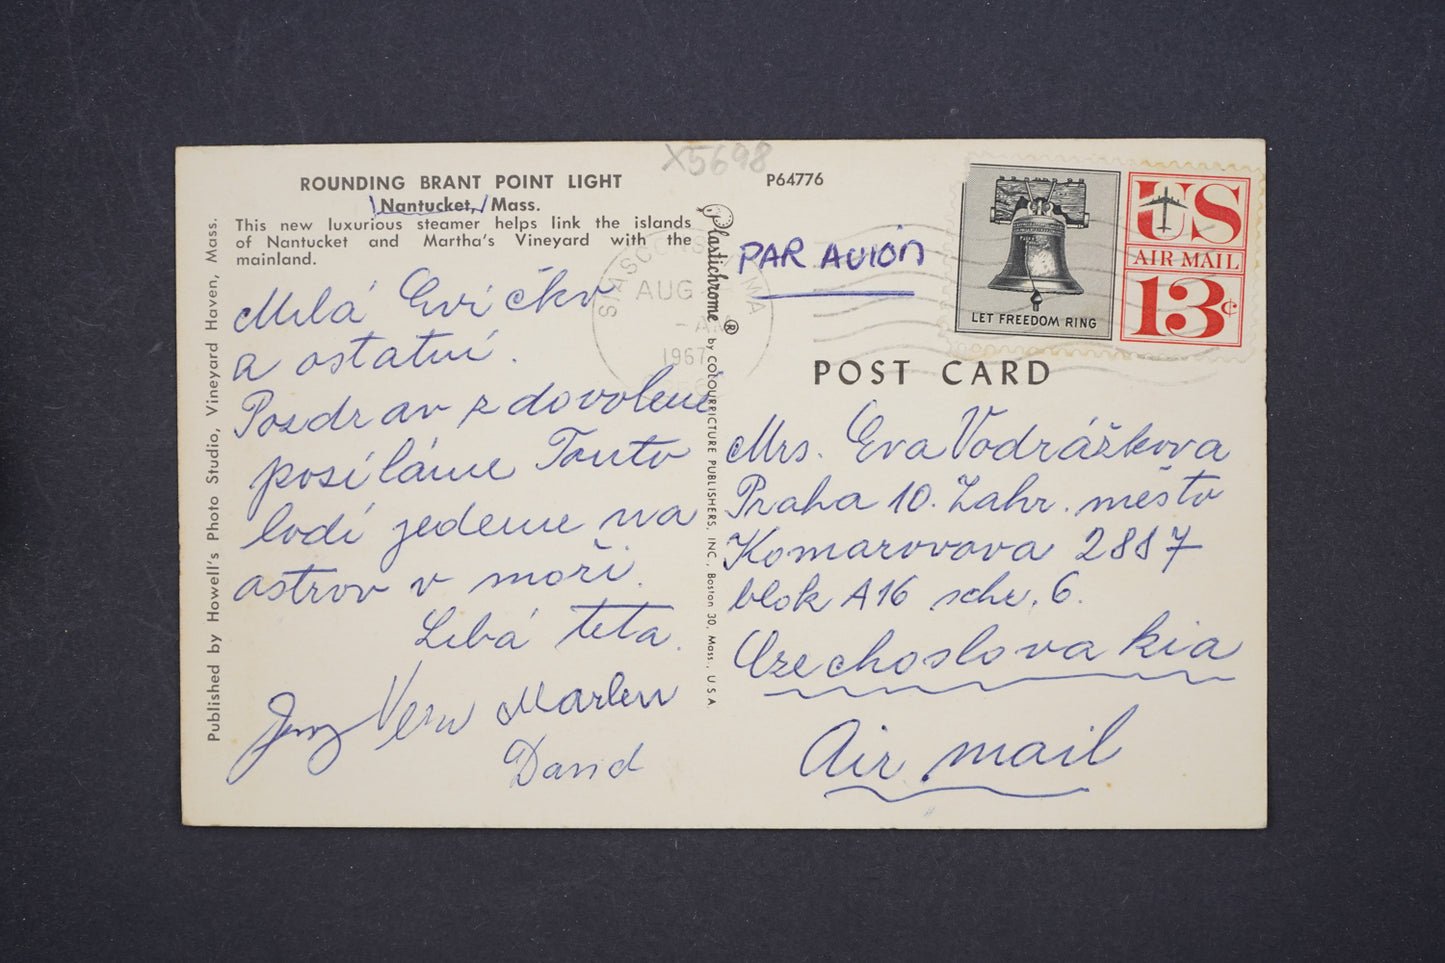 X5698
ROUNDING BRANT POINT LIGHT
Nantucket, Mass.
This new luxurious steamer helps link the islands
of Nantucket and Martha's Vineyard with the
mainland.
Milá Evičko
a ostatní.
Pozdrav z dovolené
posíláme Touto
lodí jedeme na
ostrov v moři.
Libá teta.
Jerry Vera Marlen
David
Published by Howell's Photo Studio, Vineyard Haven, Mass.
Plastichrome ® by COLOURPICTURE PUBLISHERS, INC., Boston 30, Mass., U.S.A.
P64776
SIASCONSET MA
AUG
-AM
1967
PAR AVION
LET FREEDOM RING
US
AIR MAIL
13¢
POST CARD
Mrs. Eva Vodrážkova
Praha 10. Zahr. město
Komarovova 2887
blok A16 sche. 6.
Czechoslovakia
Air mail